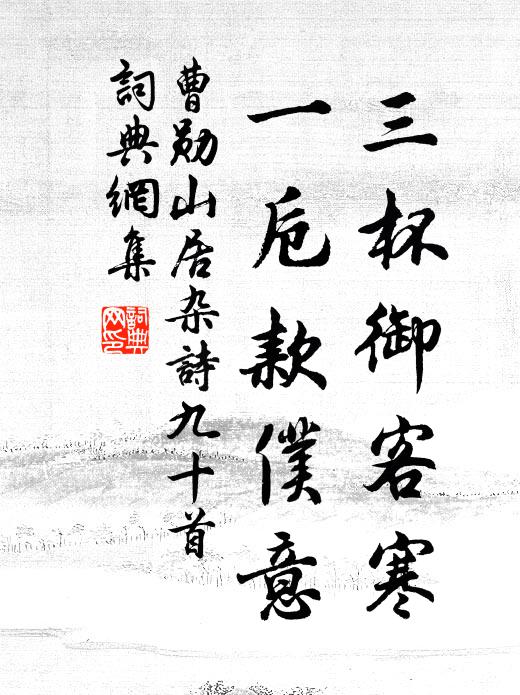 三杯御客寒
一卮款僕意
曹勛山居杂詩九十首
詞典網集
詞典
网印